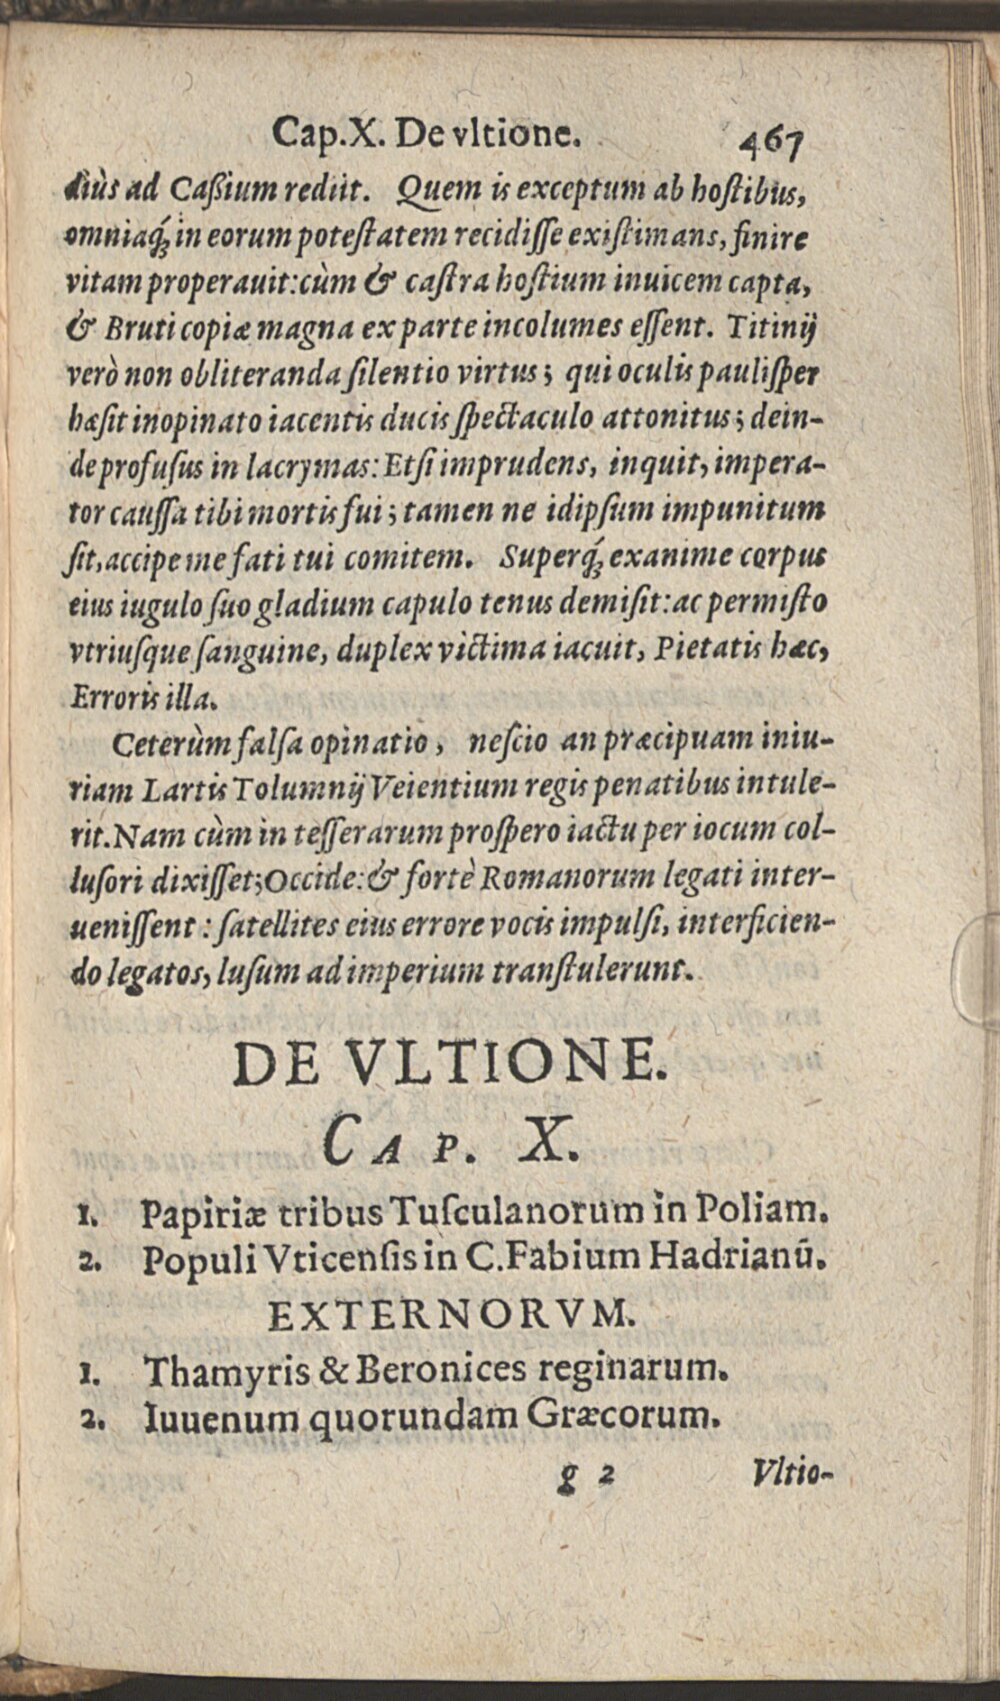 Cap.X. De vltione. 467
diùs ad Caßium rediit. Quem is exceptum ab hoſtibus,
omniaq́₃ in eorum poteſtatem recidiſſe exiſtimans, finire
vitam properauit: cùm & caſtra hoſtium inuicem capta,
& Bruti copiæ magna ex parte incolumes eſſent. Titinij
verò non obliteranda ſilentio virtus; qui oculis pauliſper
hæſit inopinato iacentis ducis ſpectaculo attonitus; dein-
de profuſus in lacrymas: Etſi imprudens, inquit, impera-
tor cauſſa tibi mortis fui; tamen ne idipſum impunitum
ſit, accipe me fati tui comitem. Superq́₃ exanime corpus
eius iugulo ſuo gladium capulo tenus demiſit: ac permiſto
vtriuſque ſanguine, duplex victima iacuit, Pietatis hæc,
Erroris illa.
Ceterùm falſa opinatio, neſcio an præcipuam iniu-
riam Lartis Tolumnij Veientium regis penatibus intule-
rit. Nam cùm in teſſerarum proſpero iactu per iocum col-
luſori dixiſſet; Occide: & fortè Romanorum legati inter-
ueniſſent: ſatellites eius errore vocis impulſi, interficien-
do legatos, luſum ad imperium tranſtulerunt.
DE VLTIONE.
CAP. X.
1. Papiriæ tribus Tuſculanorum in Poliam.
2. Populi Vticenſis in C. Fabium Hadrianū.
EXTERNORVM.
1. Thamyris & Beronices reginarum.
2. Iuuenum quorundam Græcorum.
g 2 Vltio-